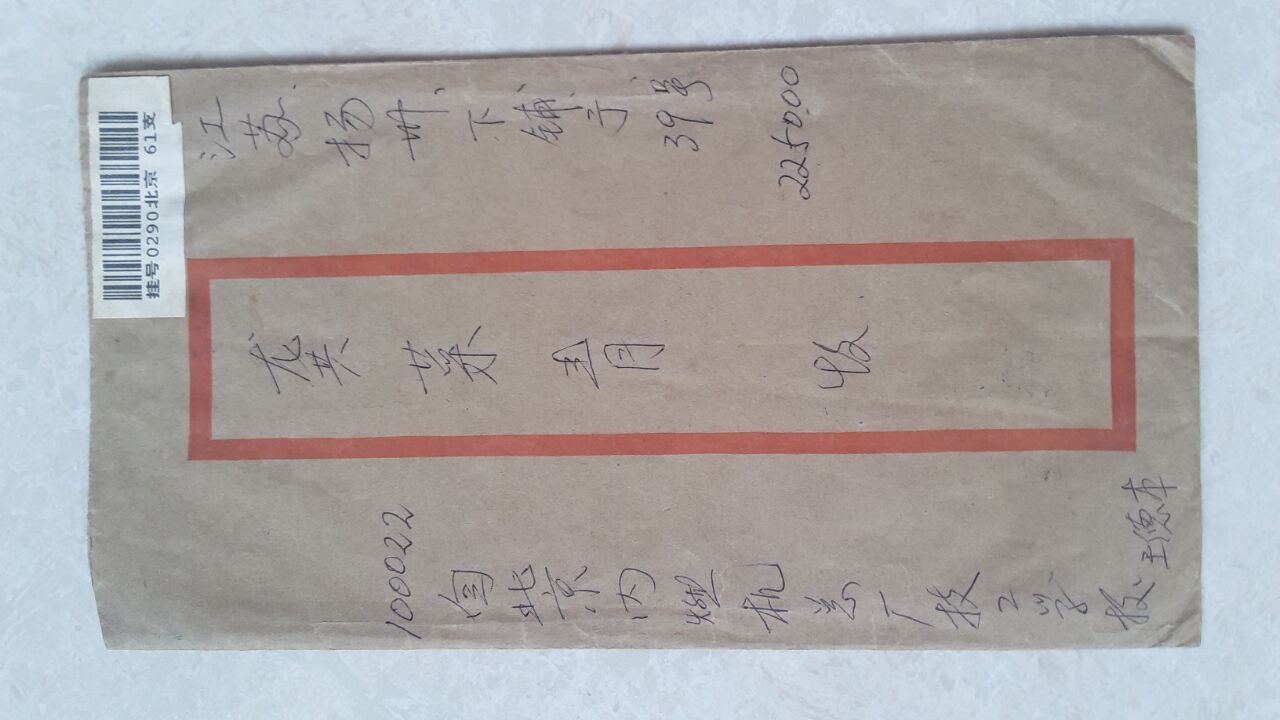 挂号0290北京 61支
江苏扬州下铺亍39号
225000
龚荣青 收
100022
自北京内燃机总厂技工学校 王德本